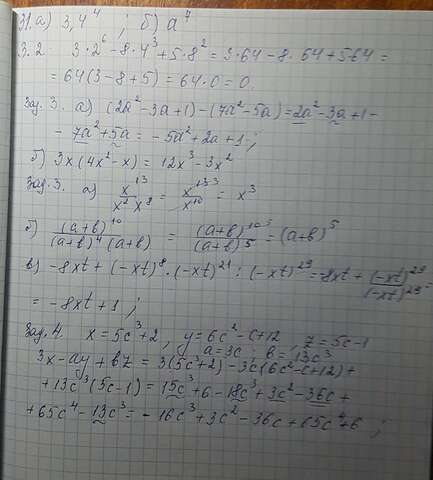 З1. а) 3,4⁴ ; б) a⁷
З. 2. 3·2⁶ - 8·4³ + 5·8² = 3·64 - 8·64 + 5·64 =
= 64(3 - 8 + 5) = 64·0 = 0.
Зад. 3. а) (2a² - 3a + 1) - (7a² - 5a) = 2a² - 3a + 1 -
- 7a² + 5a = - 5a² + 2a + 1 ;
б) 3x(4x² - x) = 12x³ - 3x²
Зад. 3. а) x¹³ / (x² x⁸) = x¹³ ³ / x¹⁰ = x³
б) (a+b)¹⁰ / ((a+b)⁴ (a+b)) = (a+b)¹⁰ ⁵ / (a+b)⁵ = (a+b)⁵
в) -8xt + (-xt)⁸ · (-xt)²¹ : (-xt)²⁹ = -8xt + (-xt)²⁹ / (-xt)²⁹ =
= -8xt + 1 ;
Зад. 4. x = 5c³ + 2, y = 6c² - c + 12, z = 5c - 1
a = 3c ; b = 13c³
3x - ay + bz = 3(5c³ + 2) - 3c(6c² - c + 12) +
+ 13c³(5c - 1) = 15c³ + 6 - 18c³ + 3c² - 36c +
+ 65c⁴ - 13c³ = - 16c³ + 3c² - 36c + 65c⁴ + 6 ;